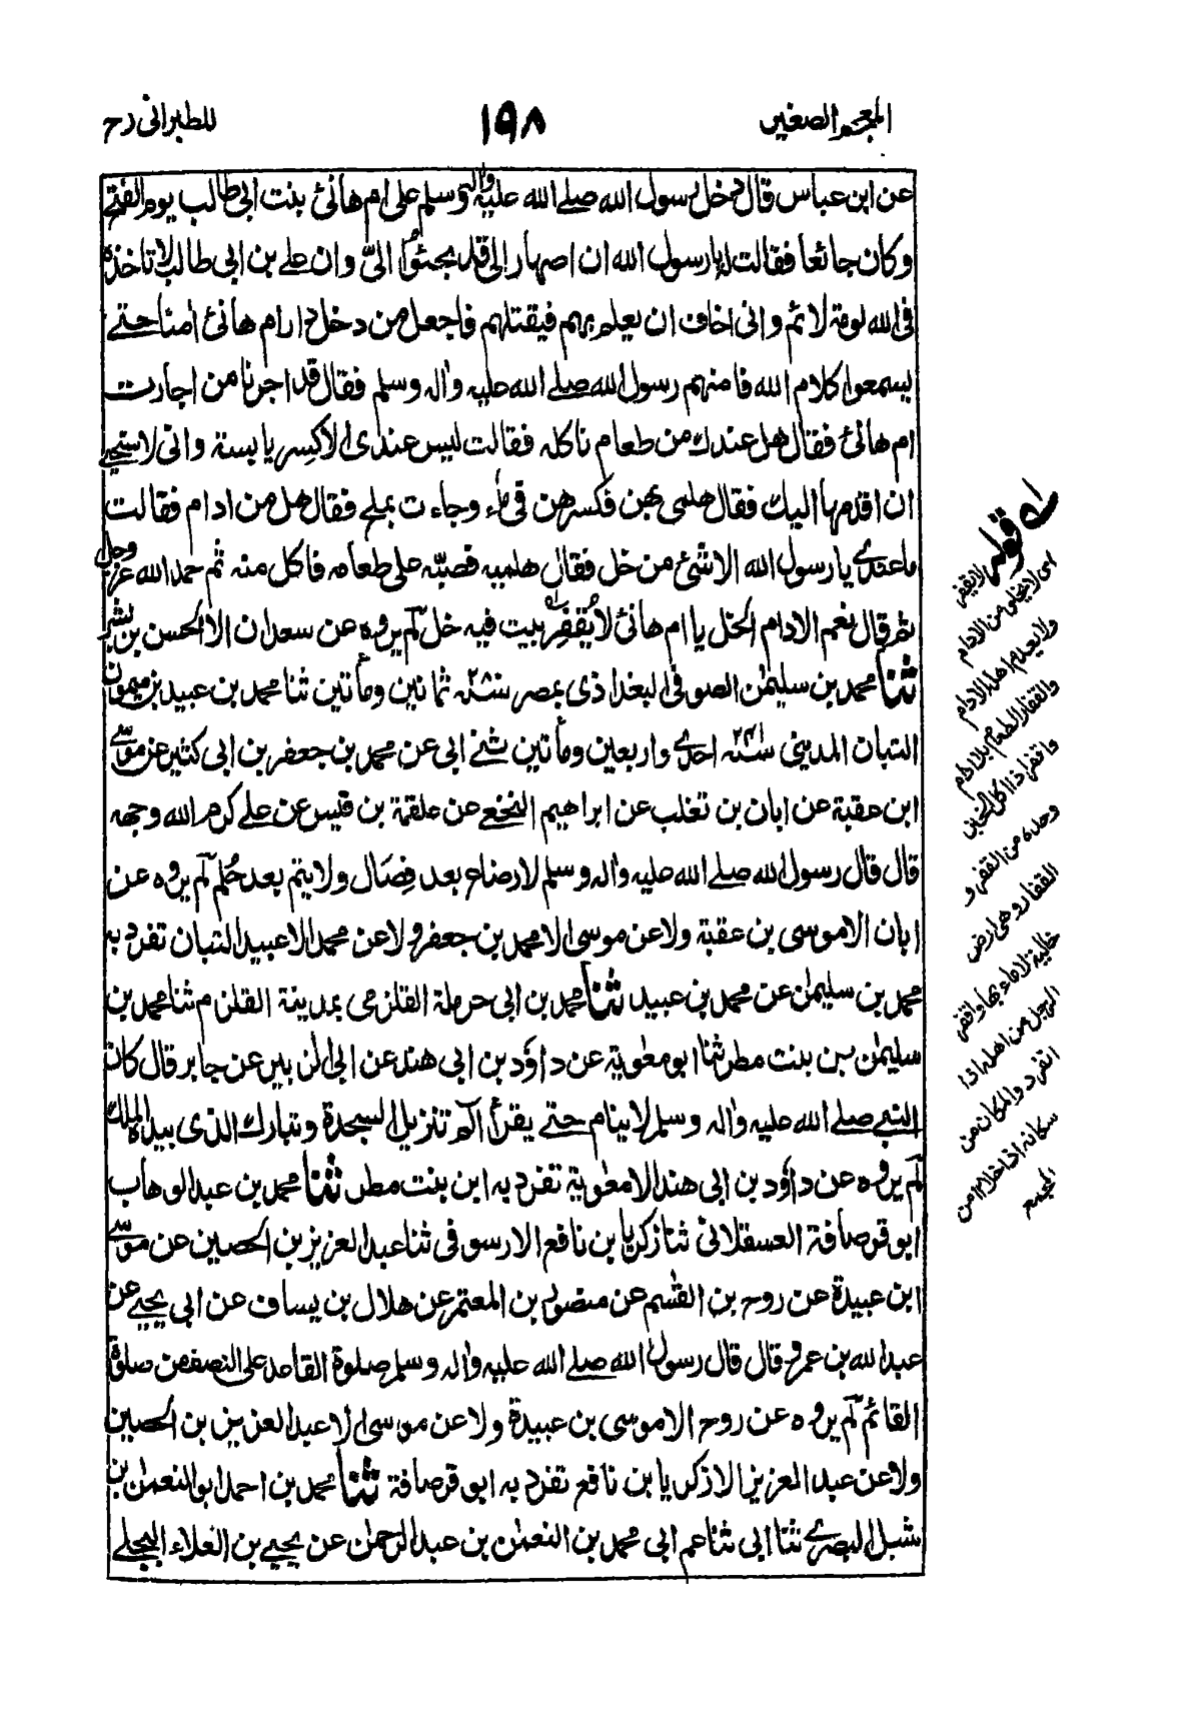 المعجم الصغير
١٩٨
للطبرانی رح
عن ابن عباس قال دخل رسول الله صلے الله علیه واٰله وسلم علی ام هانئ بنت ابی طالب یوم الفتح
وکان جائعا فقالت له یا رسول الله ان اصهارا لی قد لجئوا الیّ وان علے بن ابی طالب لا تاخذه
فی الله لومة لائم وانی اخاف ان یعلم بهم فیقتلهم فاجعل من دخل دار ام هانئ اٰمنا حتے
یسمعوا کلام الله فامنهم رسول الله صلے الله علیه واٰله وسلم فقال قد اجرنا من اجارت
ام هانئ فقال هل عندك من طعام ناکله فقالت لیس عندی الا کِسر یابسة وانی لاستحیے
ان اقدمها الیك فقال هلمی بهن فکسرهن فی ماء وجاءت بملح فقال هل من ادام فقالت
ما عندے یا رسول الله الا شئ من خل فقال هلمیه فصبّه علی طعامه فاکل منه ثم حمد الله عز وجل
ثم قال نعم الادام الخل یا ام هانئ لا یُقفِر بیت فیه خل لم یروه عن سعدان الا الحسن بن بشر
ثنا محمد بن سلیمٰن الصوفی البغداذی بمصر سنة ٢٨٠ ثمانین ومأتین ثنا محمد بن عبید بن میمون
التبان المدینی سنة ٢٤١ احدے واربعین ومأتین ثنے ابی عن محمد بن جعفر بن ابی کثیر عن موسے
ابن عقبة عن ابان بن تغلب عن ابراهیم النخعے عن علقمة بن قیس عن علے کرم الله وجهه
قال قال رسول الله صلے الله علیه واٰله وسلم لا رضاع بعد فِصَال ولا یتم بعد حُلم لم یروه عن
ابان الا موسی بن عقبة ولا عن موسی الا محمد بن جعفر ولا عن محمد الا عبید التبان تفرد به
محمد بن سلیمٰن عن محمد بن عبید ثنا محمد بن ابی حرملة القلزمی بمدینة القلزم ثنا محمد بن
سلیمٰن بن بنت مطر ثنا ابو معٰویة عن داؤد بن ابی هند عن ابی الزبیر عن جابر قال کان
النبے صلے الله علیه واٰله وسلم لا ینام حتے یقرأ الٓم تنزیل السجدة وتبارك الذی بیده الملك
لم یروه عن داؤد بن ابی هند الا معٰویة تفرد به ابن بنت مطر ثنا محمد بن عبد الوهاب
ابو قرصافة العسقلانی ثنا زکریا بن نافع الارسوفی ثنا عبد العزیز بن الحصین عن موسے
ابن عبیدة عن روح بن القٰسم عن منصور بن المعتمر عن هلال بن یساف عن ابی یحیے عن
عبد الله بن عمرو قال قال رسول الله صلے الله علیه واٰله وسلم صلوة القاعد علی النصف من صلوة
القائم لم یروه عن روح الا موسی بن عبیدة ولا عن موسی الا عبد العزیز بن الحصین
ولا عن عبد العزیز الا زکریا بن نافع تفرد به ابو قرصافة ثنا محمد بن احمد ابو النعمٰن بن
شبل البصرے ثنا ابی ثنا عم ابی محمد بن النعمٰن بن عبد الرحمٰن عن یحیے بن العلاء البجلے
لے قوله لا یقفر
ای لا یخلی من الادام
ولا یعدم اهله الادام
والقفار الطعام بلا ادام
واقفر اذا اکل الخبز
وحده من القفر و
القفار وهی ارض
خالیة لا ماء بها واقفر
الرجل من اهله اذا
انفرد والمکان من
سکانه اذا خلا ١٢ من
المجمع